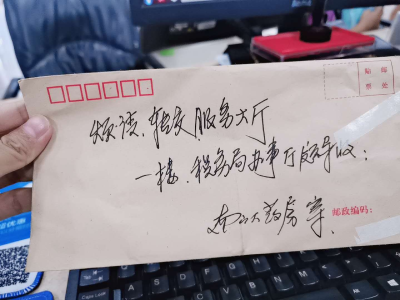 贴 邮
票 处
烦请.转交.服务大厅
一楼.税务局办事厅领导收:
大药房寄
邮政编码:
Caps Lock